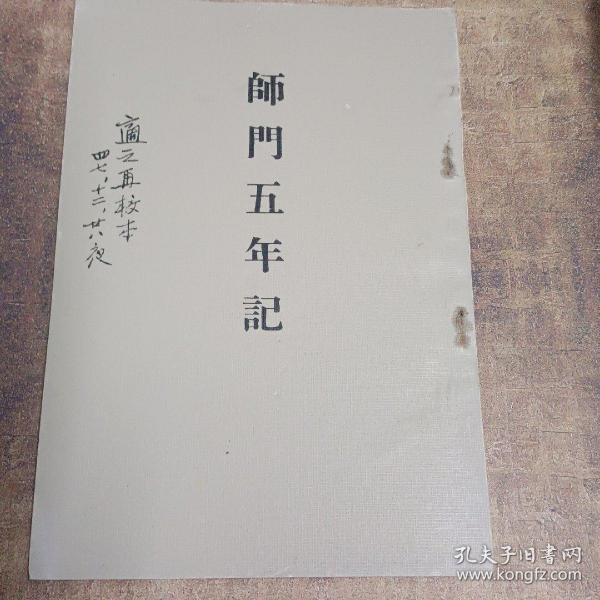 師門五年記
適之再校本
四七、十二、廿八夜
孔夫子旧書网
www.kongfz.com